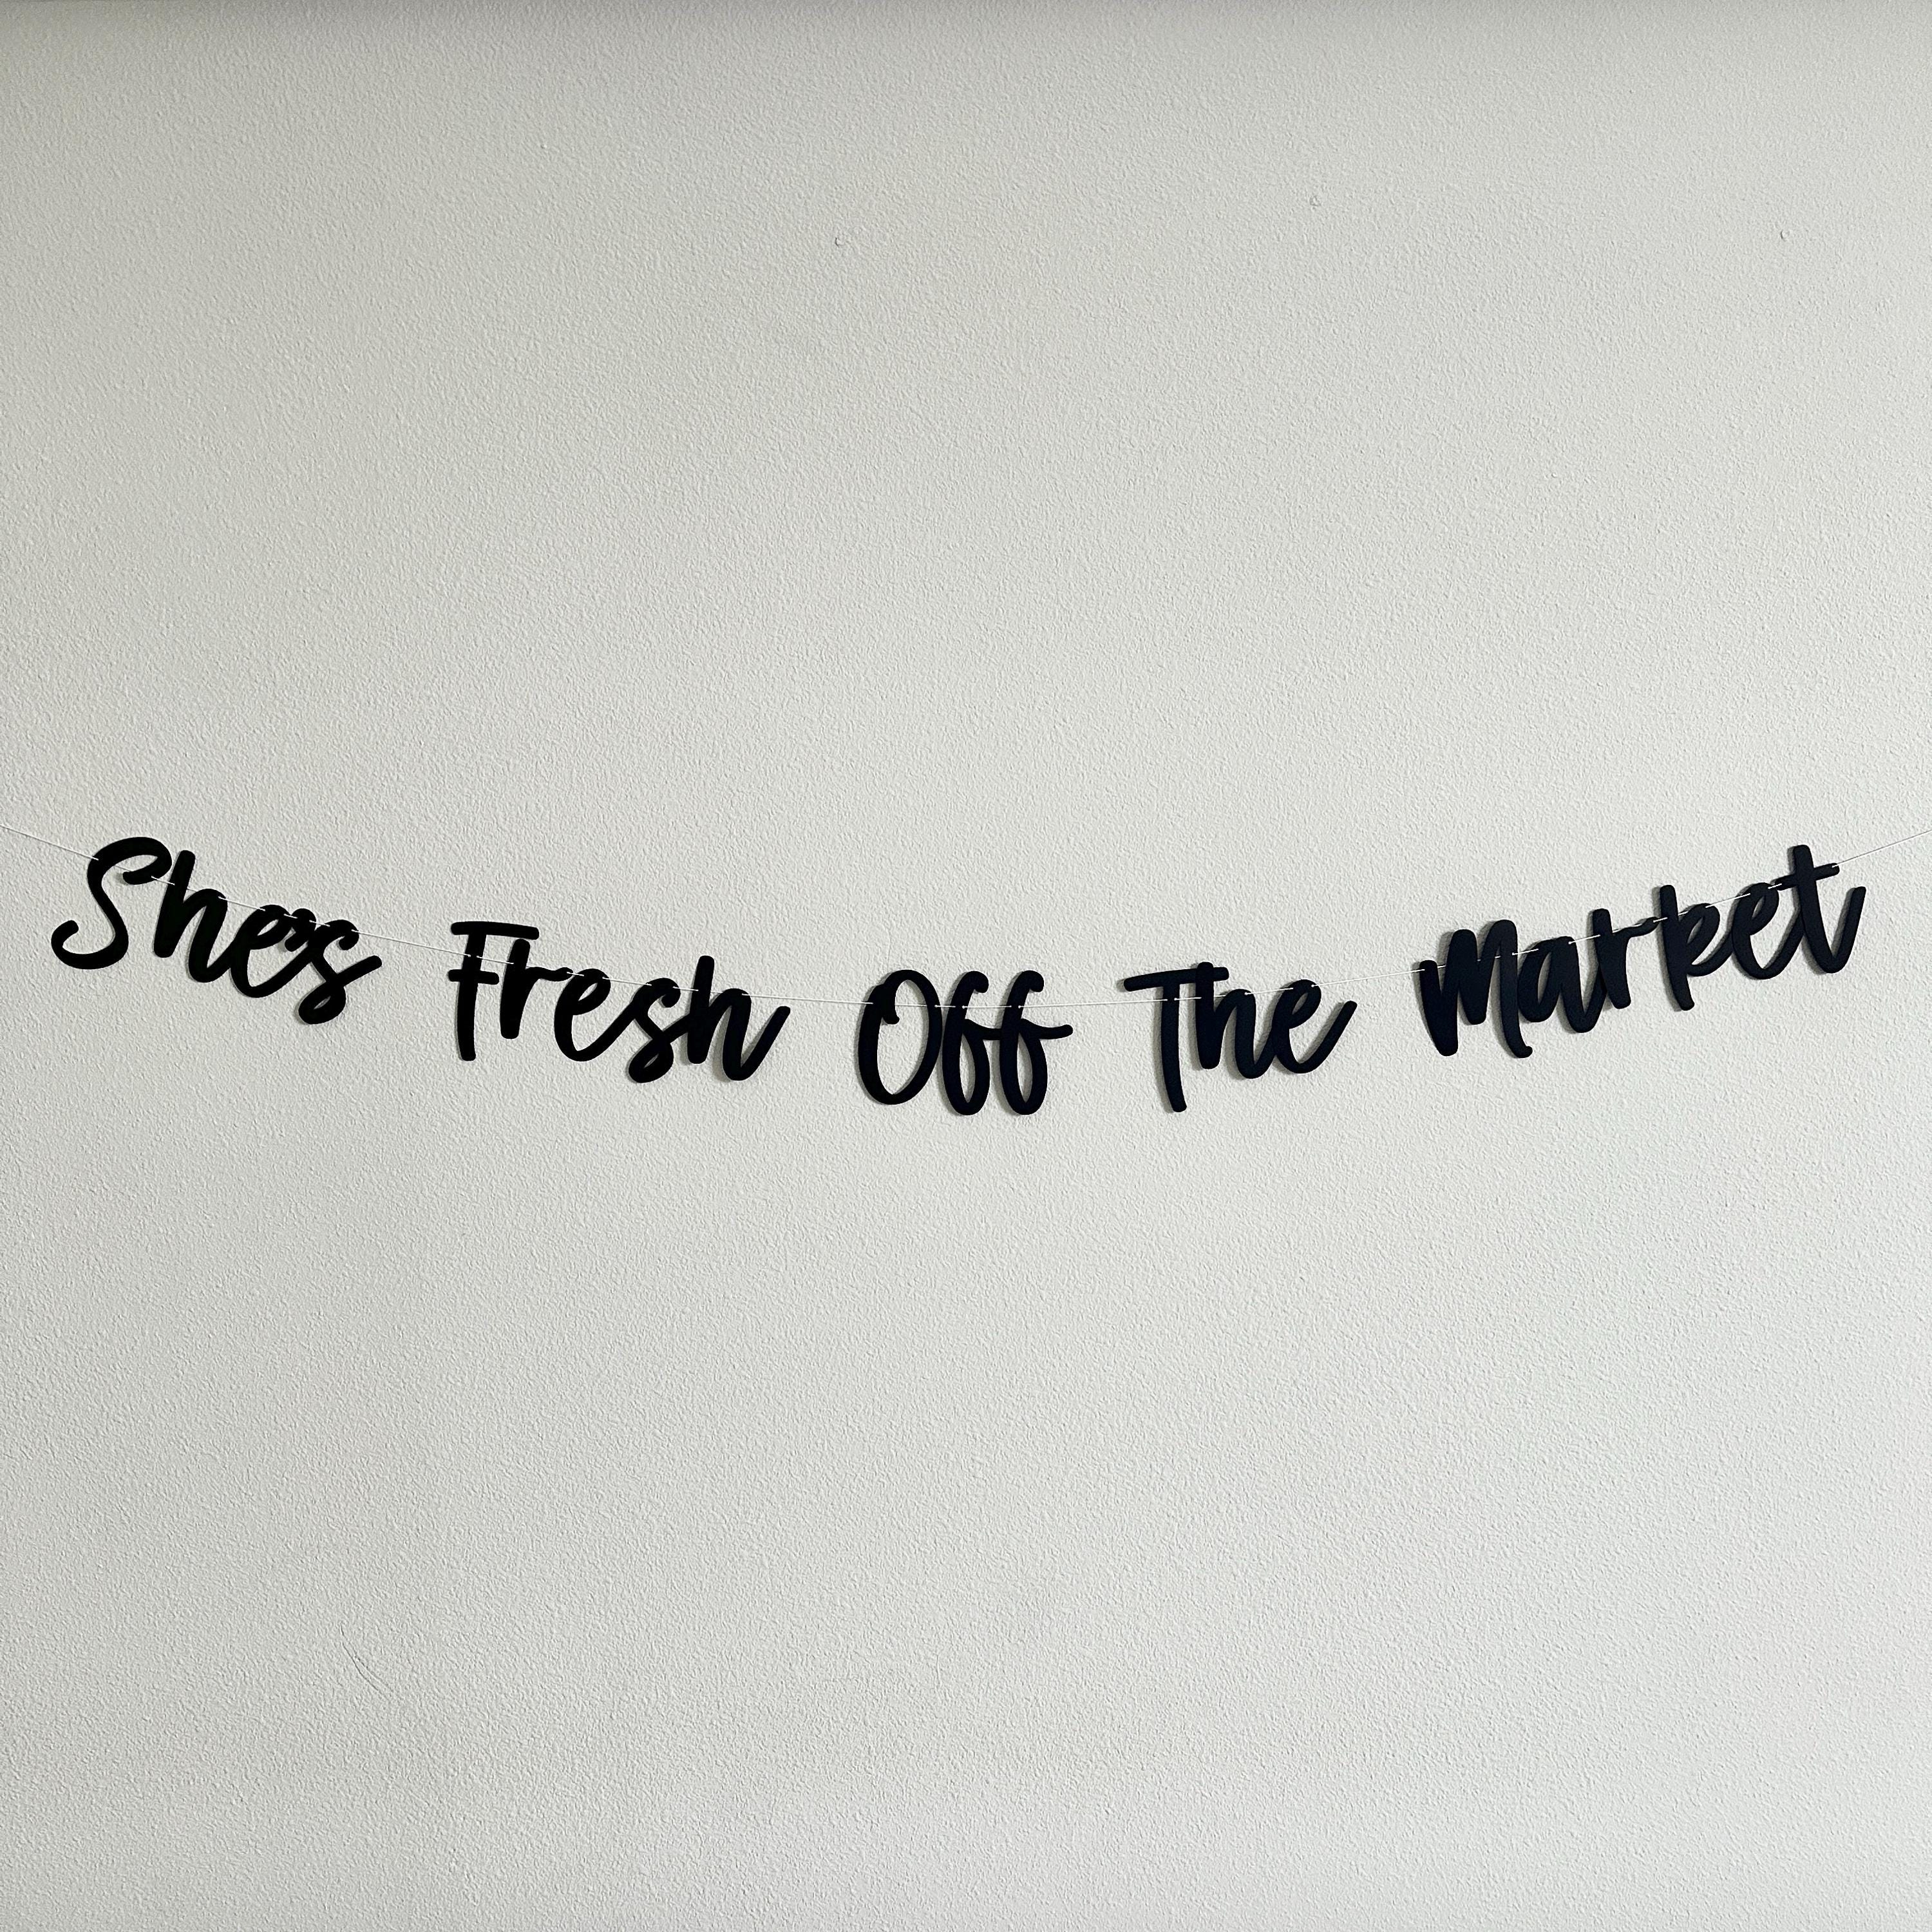 She's Fresh Off The Market